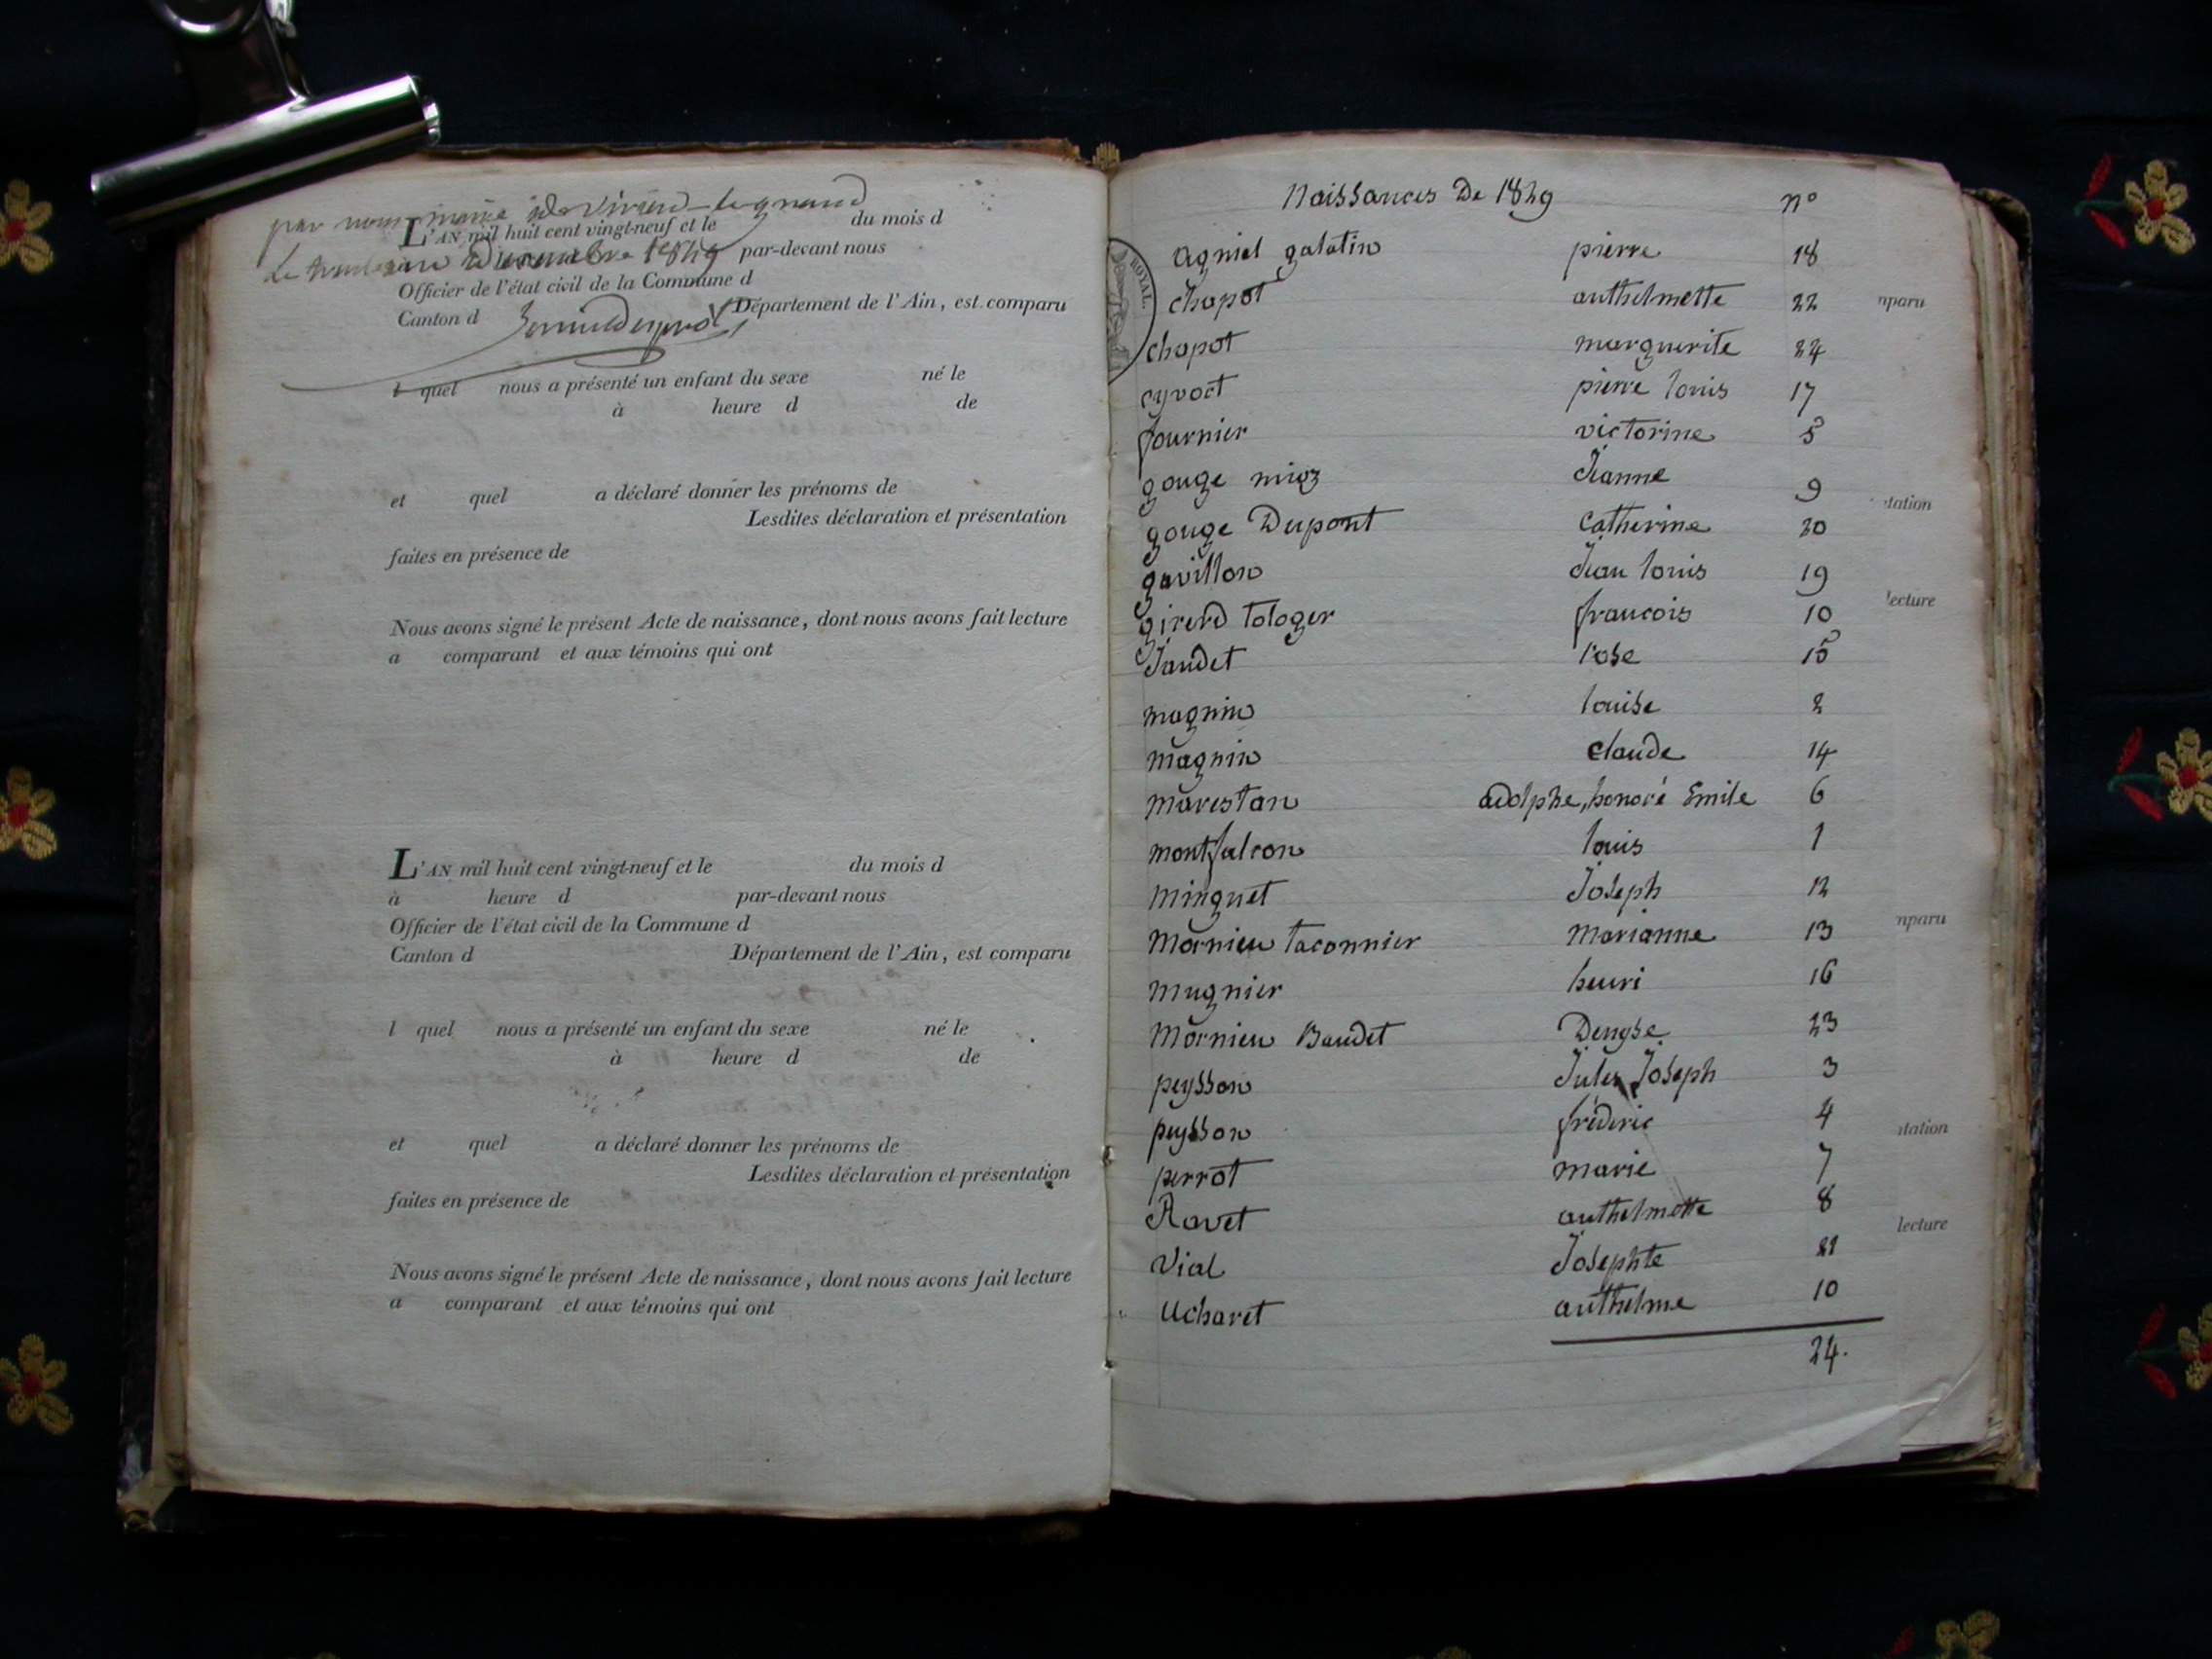 par nous maire de Virieu-le-grand
L'AN mil huit cent vingt-neuf et le du mois d
Le trente un Decembre 1829 par-devant nous
Officier de l'état civil de la Commune d
Canton d Département de l'Ain, est comparu
l quel nous a présenté un enfant du sexe né le
à heure d de
et quel a déclaré donner les prénoms de
Lesdites déclaration et présentation
faites en présence de
Nous avons signé le présent Acte de naissance, dont nous avons fait lecture
a comparant et aux témoins qui ont
L'AN mil huit cent vingt-neuf et le du mois d
à heure d par-devant nous
Officier de l'état civil de la Commune d
Canton d Département de l'Ain, est comparu
l quel nous a présenté un enfant du sexe né le
à heure d de
et quel a déclaré donner les prénoms de
Lesdites déclaration et présentation
faites en présence de
Nous avons signé le présent Acte de naissance, dont nous avons fait lecture
a comparant et aux témoins qui ont
Naissances De 1829 n°
ROYAL.
agniel galatin pierre 18
chapot anthelmette 22
chapot marguerite 24
cyvoct pierre louis 17
fournier victorine 5
gouge mioz Jeanne 9
gouge Dupont Catherine 20
gavillon Jean louis 19
girerd tologer francois 10
Jaudet rose 15
magnin louise 2
magnin claude 14
marestan adolphe, honoré Emile 6
montfalcon louis 1
minguet Joseph 12
mornieu taconnier marianne 13
mugnier henri 16
mornieu Baudet Denyse 23
peysson Jules Joseph 3
peysson fréderic 4
perrot marie 7
Ravet anthelmette 8
Vial Josephte 21
Ucharet anthelme 10
24.
nparu
tation
lecture
nparu
tation
lecture